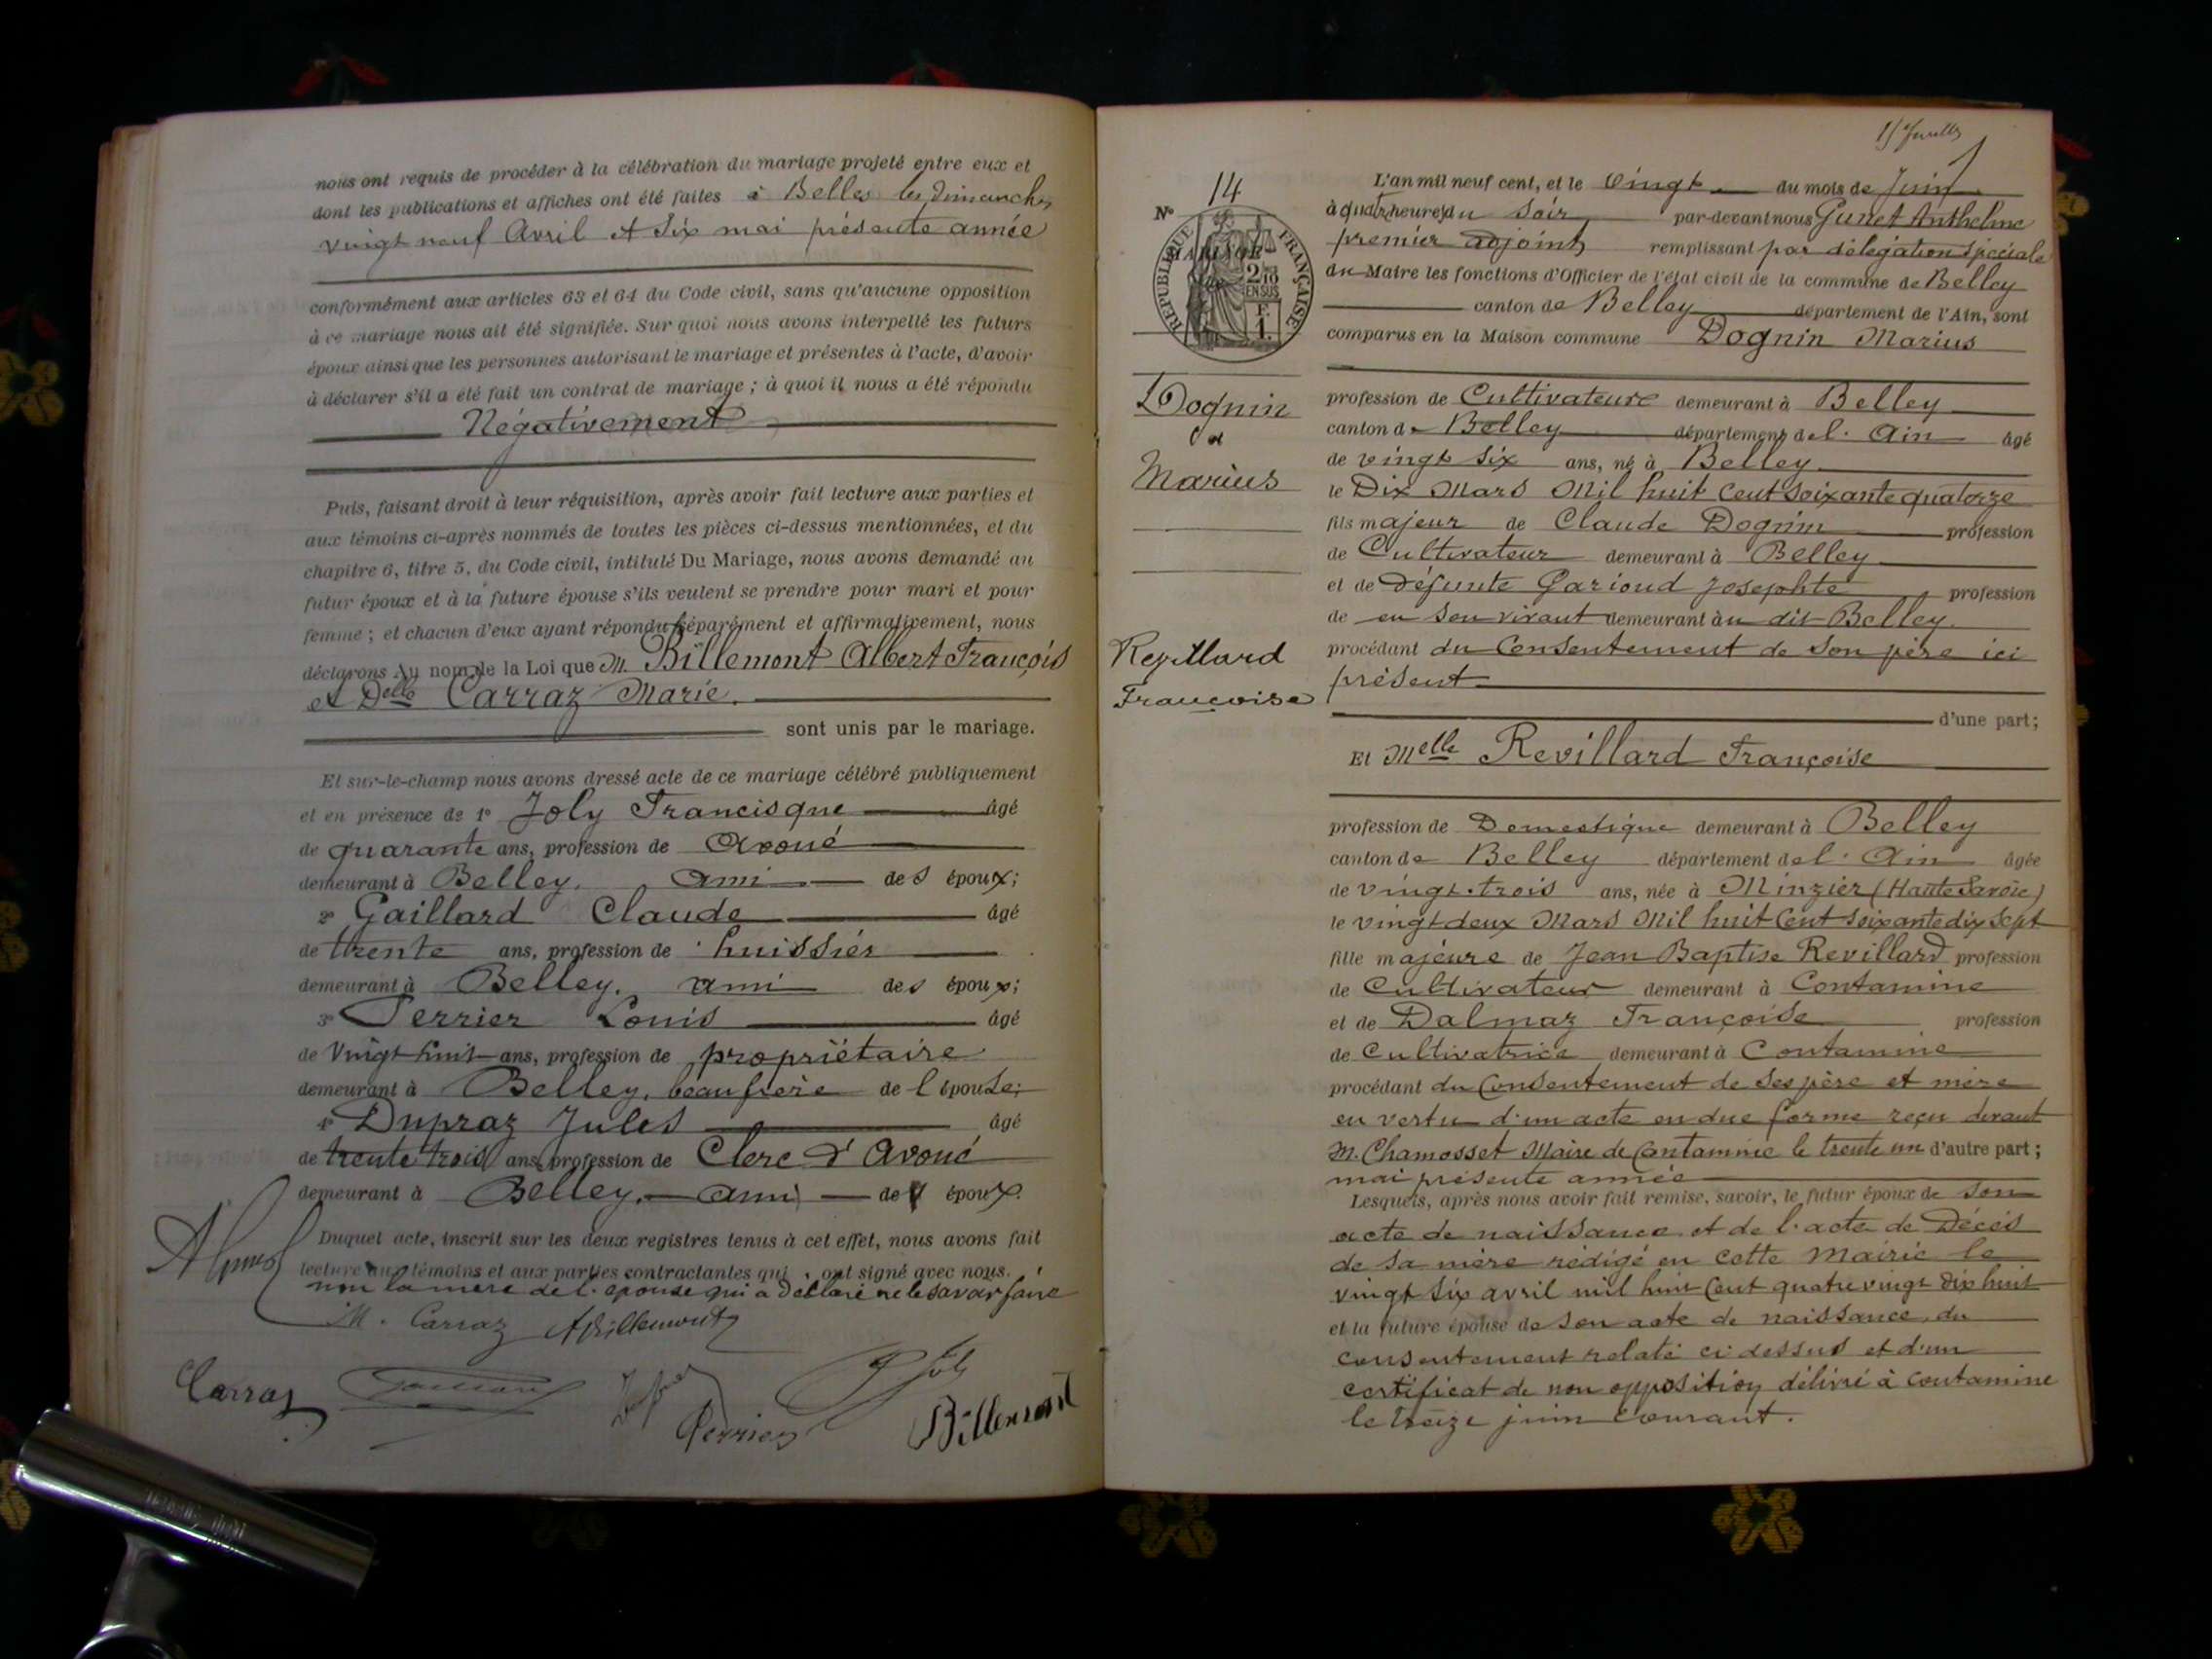 nous ont requis de procéder à la célébration du mariage projeté entre eux et
dont les publications et affiches ont été faites à Belley les dimanches
vingt neuf Avril et Six mai présente année
conformément aux articles 63 et 64 du Code civil, sans qu'aucune opposition
à ce mariage nous ait été signifiée. Sur quoi nous avons interpellé les futurs
époux ainsi que les personnes autorisant le mariage et présentes à l'acte, d'avoir
à déclarer s'il a été fait un contrat de mariage ; à quoi il nous a été répondu
Négativement
Puis, faisant droit à leur réquisition, après avoir fait lecture aux parties et
aux témoins ci-après nommés de toutes les pièces ci-dessus mentionnées, et du
chapitre 6, titre 5, du Code civil, intitulé Du Mariage, nous avons demandé au
futur époux et à la future épouse s'ils veulent se prendre pour mari et pour
femme ; et chacun d'eux ayant répondu séparément et affirmativement, nous
déclarons Au nom de la Loi que M. Billemont Albert François
et Delle Carraz Marie.
sont unis par le mariage.
Et sur-le-champ nous avons dressé acte de ce mariage célébré publiquement
et en présence de 1º Joly Francisque âgé
de quarante ans, profession de Avoué
demeurant à Belley. Ami des époux;
2º Gaillard Claude âgé
de trente ans, profession de huissier
demeurant à Belley. ami des époux;
3º Perrier Louis âgé
de Vingt huit ans, profession de propriétaire
demeurant à Belley, beau frère de l épouse;
4º Dupraz Jules âgé
de trente trois ans, profession de Clerc d'Avoué
demeurant à Belley. ami de époux.
Duquel acte, inscrit sur les deux registres tenus à cet effet, nous avons fait
lecture aux témoins et aux parties contractantes qui ont signé avec nous.
non la mère de l'épouse qui a déclaré ne le savoir faire
M. Carraz ABillemont
Carraz
Joly
Perrier
Billemont
15 Juillet
Nº 14
RÉPUBLIQUE FRANÇAISE
MARIAGE
2/10
EN SUS
F.
1.
Dognin
et
Marius
Revillard
Francoise
L'an mil neuf cent, et le vingt du mois de Juin
à quatre heures du Soir par-devant nous Gunet Anthelme
premier adjoint remplissant par délégation spéciale
du Maire les fonctions d'Officier de l'état civil de la commune de Belley
canton de Belley département de l'Ain, sont
comparus en la Maison commune Dognin Marius
profession de Cultivateur demeurant à Belley
canton de Belley département de l'Ain âgé
de vingt six ans, né à Belley
le Dix Mars Mil huit Cent Soixante quatorze
fils majeur de Claude Dognin profession
de Cultivateur demeurant à Belley
et de Défunte Garioud Josephte profession
de en son vivant demeurant àu dit Belley.
procédant du Consentement de Son père ici
présent
d'une part;
Et Melle Revillard Françoise
profession de Domestique demeurant à Belley
canton de Belley département de l'Ain âgée
de vingt-trois ans, née à Minzier (Haute Savoie)
le vingt deux Mars Mil huit Cent Soixante dix Sept
fille majeure de Jean Baptise Revillard profession
de Cultivateur demeurant à Contamine
et de Dalmaz Françoise profession
de Cultivatrice demeurant à Contamine
procédant du Consentement de Ses père et mère
en vertu d'un acte en due forme reçu devant
M. Chamosset Maire de Contamine le trente un d'autre part;
mai présente année
Lesquels, après nous avoir fait remise, savoir, le futur époux de Son
acte de naissance et de l'acte de Décès
de sa mère rédigé en cette Mairie le
vingt Six avril mil huit Cent quatre vingt Dix huit
et la future épouse de Son acte de naissance, du
consentement relaté ci dessus et d'un
certificat de non opposition délivré à Contamine
le treize juin courant.